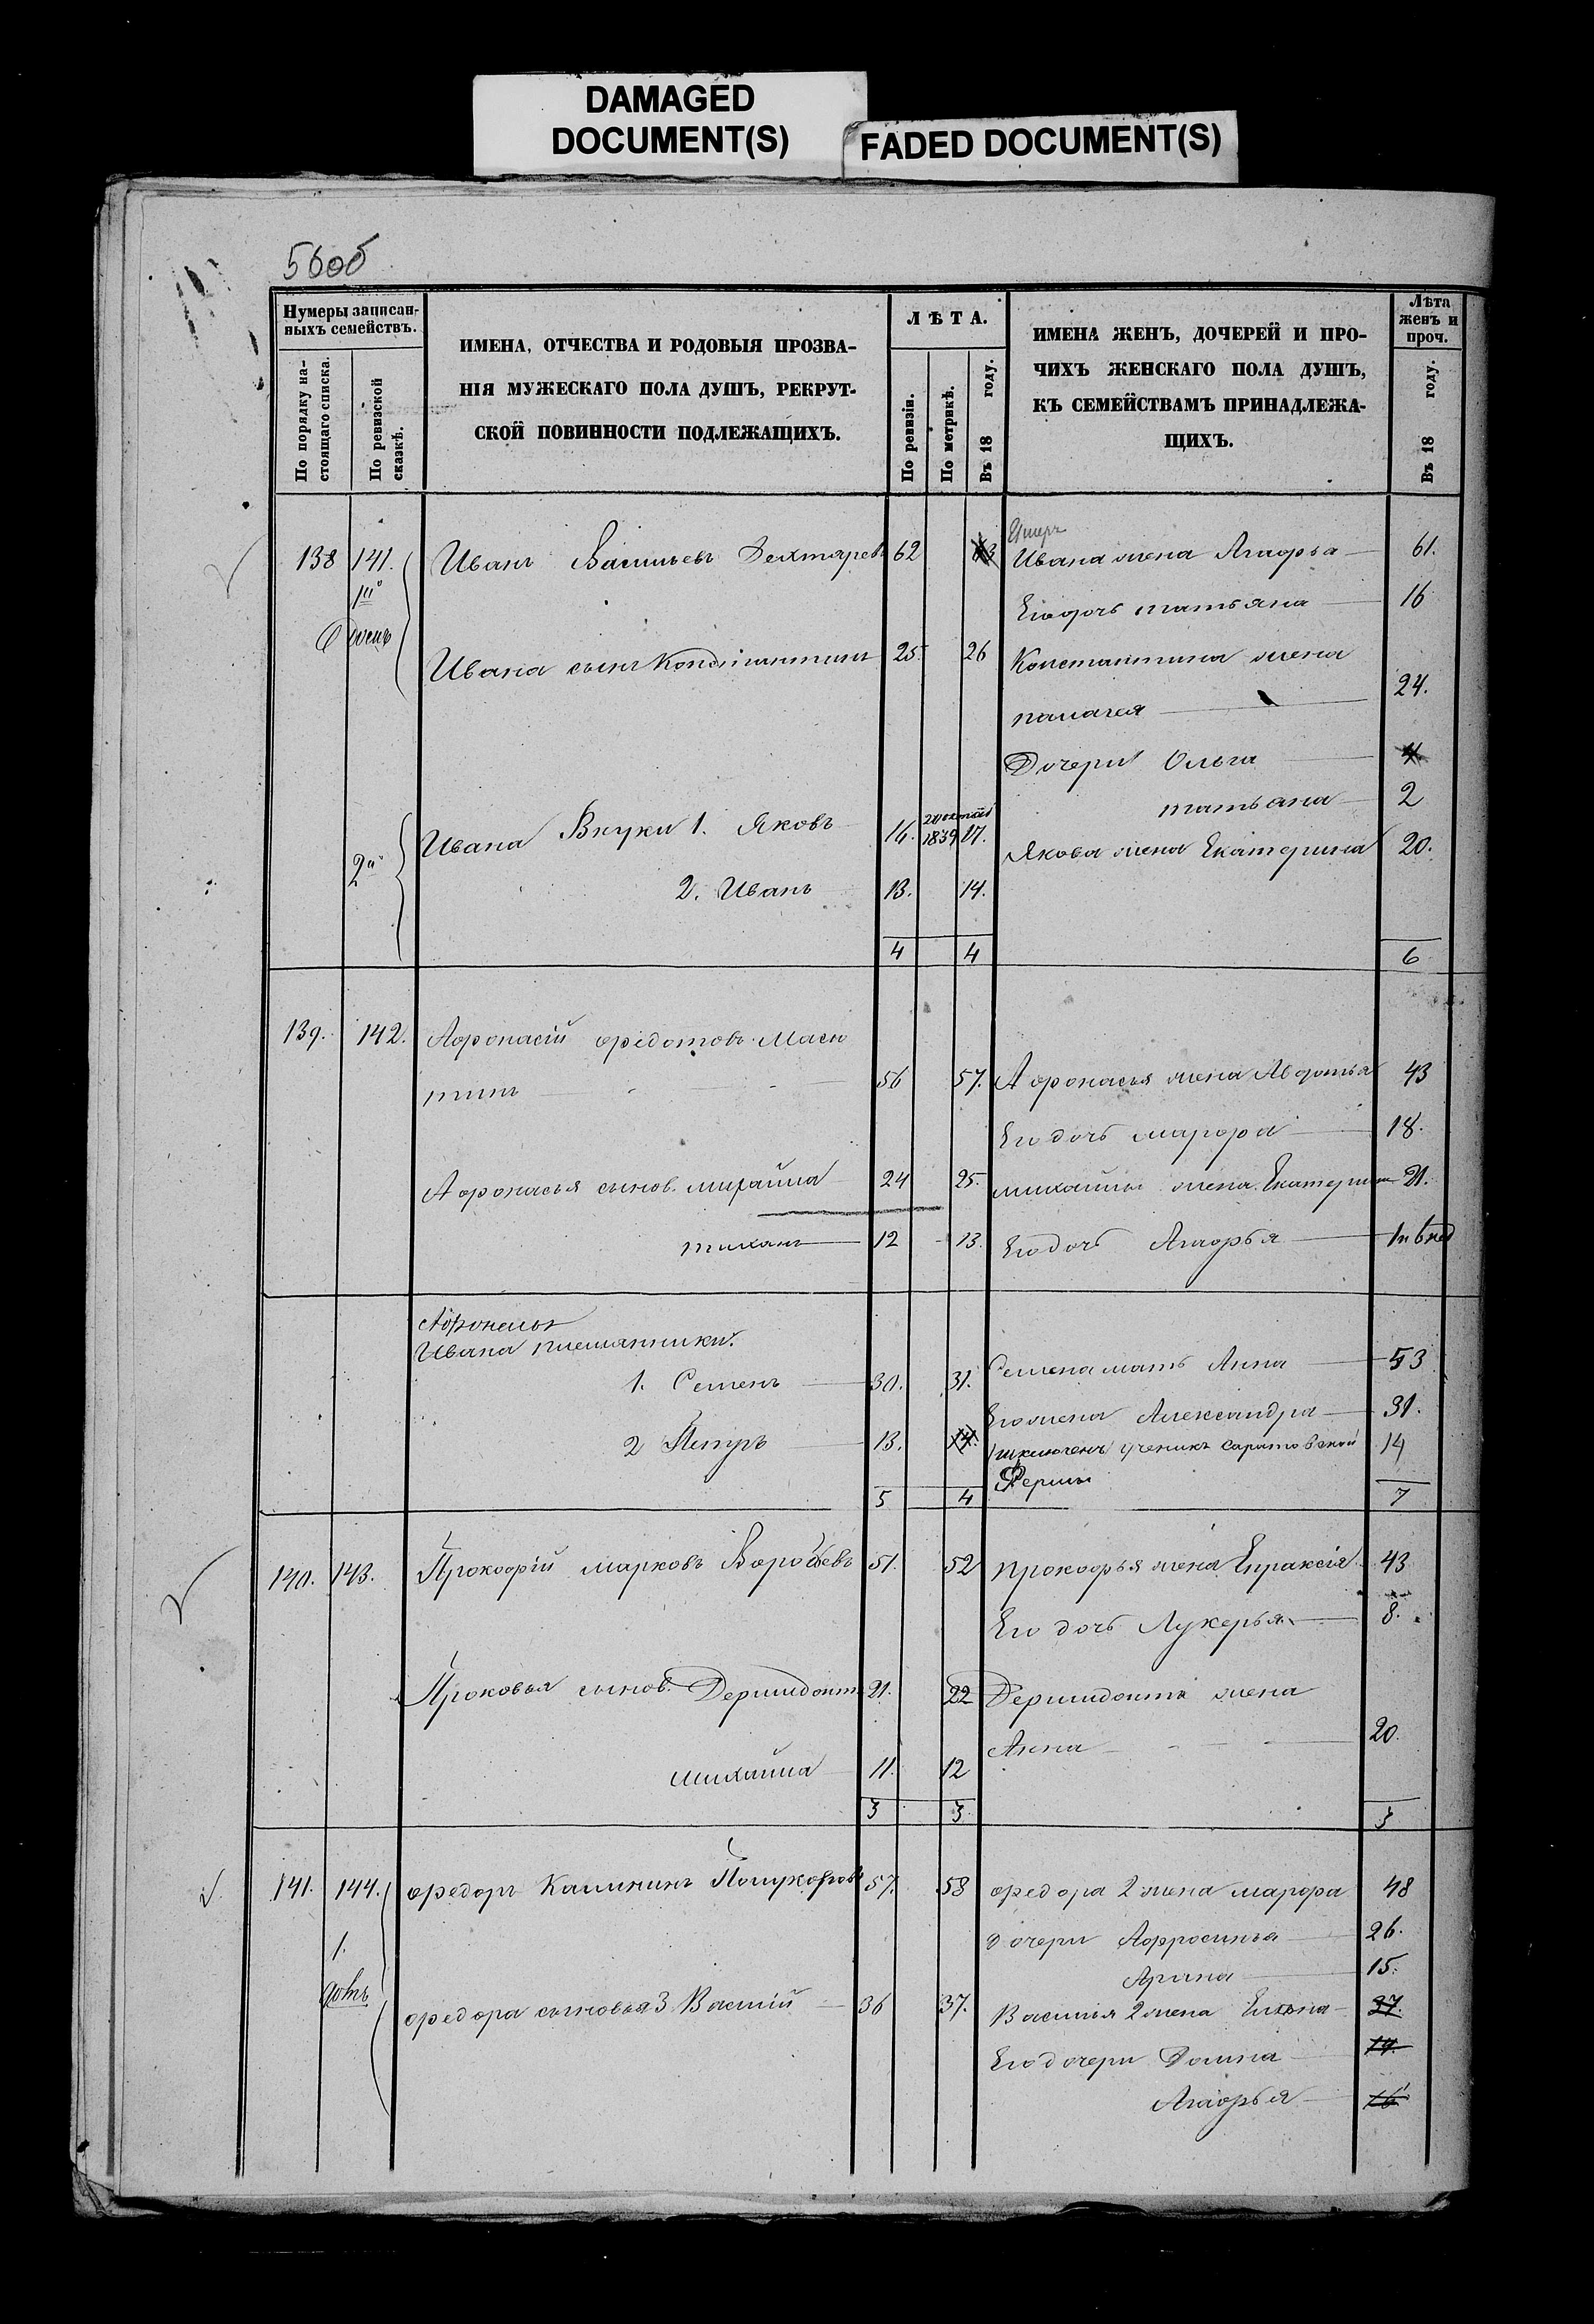 DAMAGED
DOCUMENT(S)
FADED DOCUMENT(S)
56об
Нумеры записан-
ныхъ семействъ.
По порядку на-
стоящаго списка.
По ревизской
сказкѣ.
ИМЕНА, ОТЧЕСТВА И РОДОВЫЯ ПРОЗВА-
НІЯ МУЖЕСКАГО ПОЛА ДУШЪ, РЕКРУТ-
СКОЙ ПОВИННОСТИ ПОДЛЕЖАЩИХЪ.
ЛѢТА.
По ревизіи.
По метрикѣ.
Въ 18 году.
ИМЕНА ЖЕНЪ, ДОЧЕРЕЙ И ПРО-
ЧИХЪ ЖЕНСКАГО ПОЛА ДУШЪ,
КЪ СЕМЕЙСТВАМЪ ПРИНАДЛЕЖА-
ЩИХЪ.
Лѣта
женъ и
проч.
Въ 18 году.
Умеръ
138 141. Иванъ Васильевъ Дехтяревъ 62 63 Ивана жена Агафья 61.
Его дочь татьяна 16
Ивана сынъ Константинъ 25. 26 Константина жена
палагея 24.
Дочери Ольга 4
татьяна 2
2й Ивана Внуки 1. Яковъ 16. 1839 17. Якова жена Екатерина 20.
2. Иванъ 13. 14.
4 4 6
139. 142. Афонасій федотовъ Масю
тинъ 56 57. Афонасья жена Авдотья 43
Его дочь марфа 18.
Афонасья сынов. михайла 24 25. михайлы жена Екатерина 21.
тихонъ 12 13. Его дочь Агафья
Афонасья
Ивана племянники.
1. Семенъ 30. 31. Семена мать Анна 53
Его жена Александра 31.
2 Петръ 13. 14. исключенъ ученикъ саратовской 14
Фермы
5 4 7
140. 143. Прокофій марковъ Воробьевъ 51. 52 прокофья жена Епраксія 43
Его дочь Лукерья 8.
Проковья сынов. Дермидонтъ 21. 22 Дермидонта жена
Анна 20.
михайла 11. 12
3 3 3
141. 144. федоръ Калининъ Полукаровъ 57. 58 федора 2 жена марфа 48
1. дочери Афросинья 26.
Арина 15.
федора сыновья 3 Василій 36 37. Василья 2 жена Елена 37.
Его дочери Домна 19.
Агафья 16